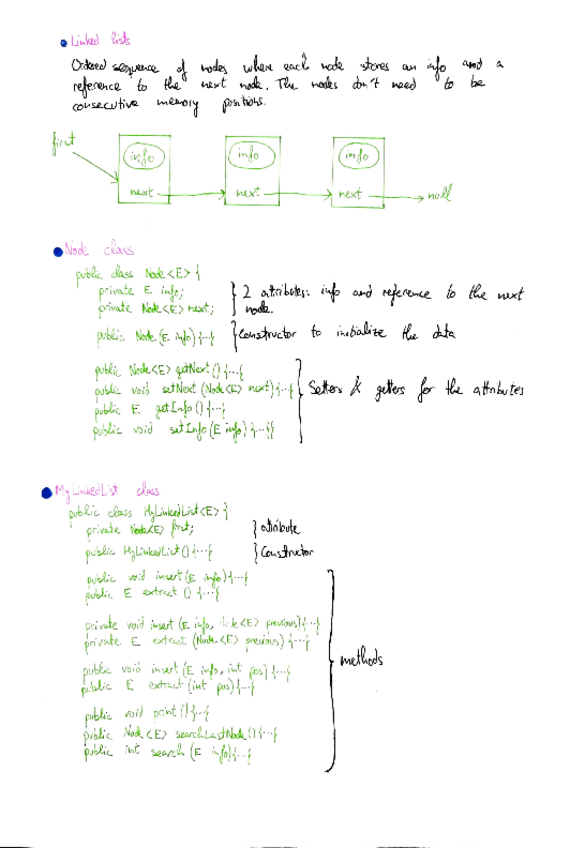 Linked lists
Ordered sequence of nodes where each node stores an info and a
reference to the next node. The nodes don't need to be
consecutive memory positions.
first
info info info
next next next null
Node class
public class Node<E> {
private E info;
private Node<E> next;
} 2 attributes: info and reference to the next
node.
public Node(E info) {...}
} Constructor to initialize the data
public Node<E> getNext() {...}
public void setNext (Node<E> next) {...}
public E getInfo() {...}
public void setInfo(E info) {...}}
} Setters & getters for the attributes
MyLinkedList class
public class MyLinkedList<E> {
private Node<E> first; } attribute
public MyLinkedList() {...} } Constructor
public void insert(E info) {...}
public E extract () {...}
private void insert (E info, Node<E> previous) {...}
private E extract (Node<E> previous) {...}
public void insert (E info, int pos) {...}
public E extract (int pos) {...}
public void print () {...}
public Node<E> searchLastNode() {...}
public int search (E info) {...}
} methods